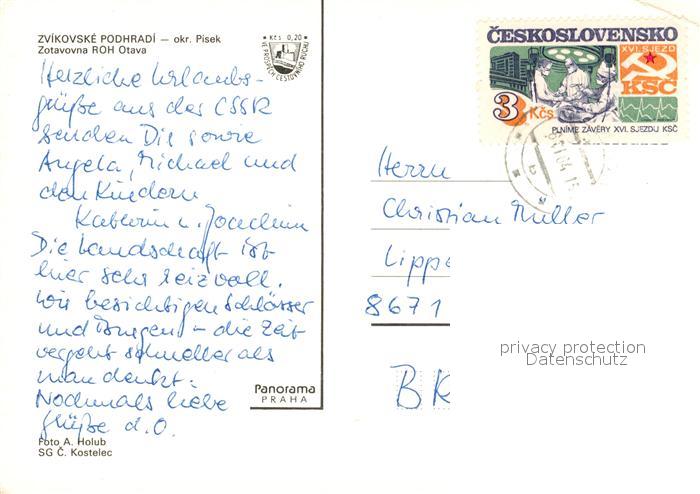 ZVÍKOVSKÉ PODHRADÍ — okr. Písek
Zotavovna ROH Otava
Kčs 0,20
VE PROSPĚCH CESTOVNÍHO RUCHU
Herzliche Urlaubs-
grüße aus der CSSR
senden Dir sowie
Angela, Michael und
den Kindern
Kathrin u. Joachim
Die Landschaft ist
hier sehr reizvoll.
Wir besichtigen Schlösser
und Burgen – die Zeit
vergeht schneller als
man denkt.
Nochmals liebe
Grüße d. O.
Foto A. Holub
SG Č. Kostelec
Panorama
PRAHA
ČESKOSLOVENSKO
XVI. SJEZD
KSČ
3 Kčs
PLNÍME ZÁVĚRY XVI. SJEZDU KSČ
Herrn
Christian Müller
Lippe
8671
BR
privacy protection
Datenschutz